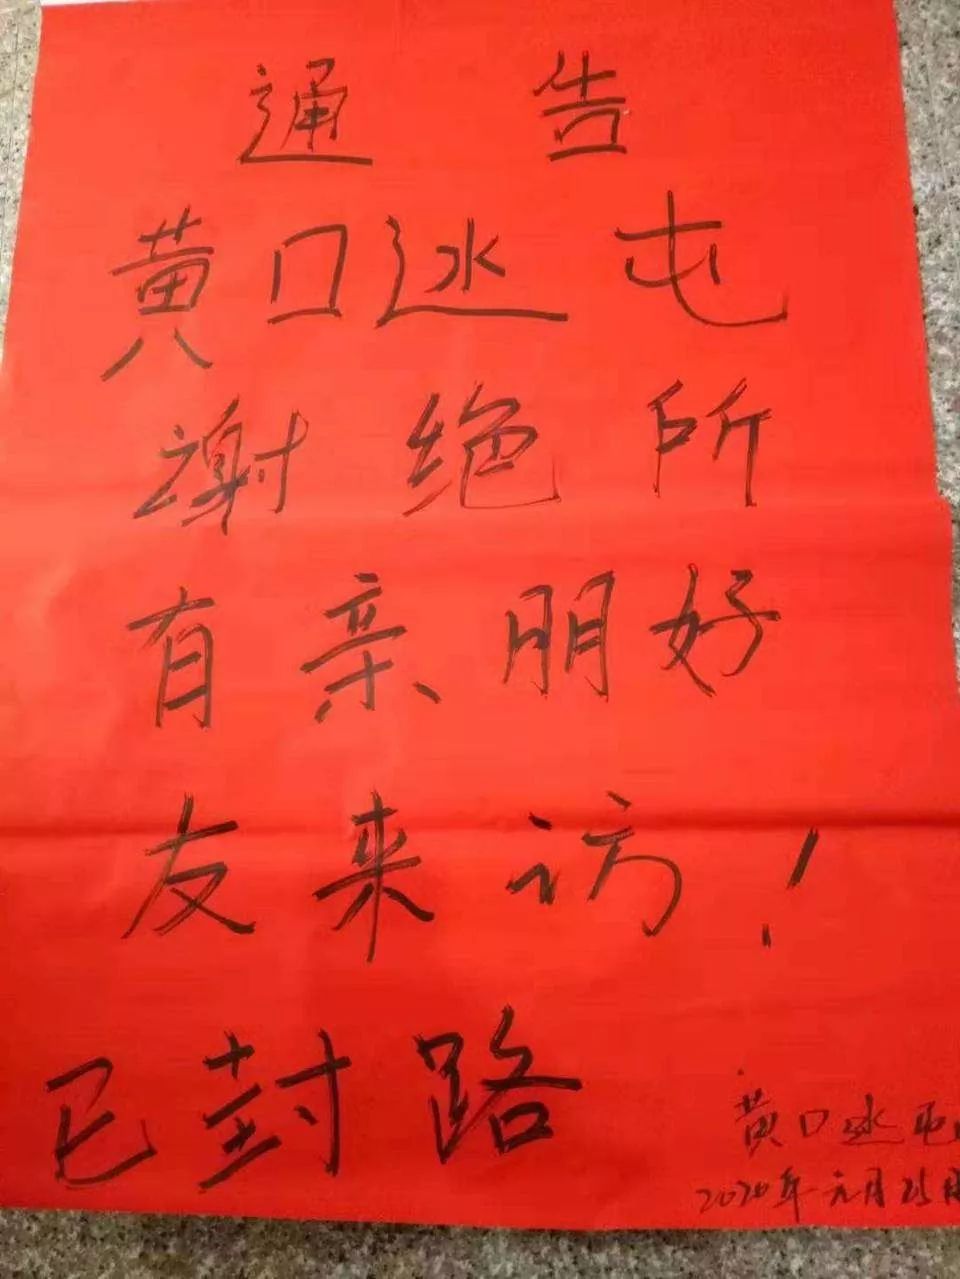 通告
黄口逖屯
谢绝所
有亲朋好
友来访!
已封路
黄口逖屯
2020年元月25日